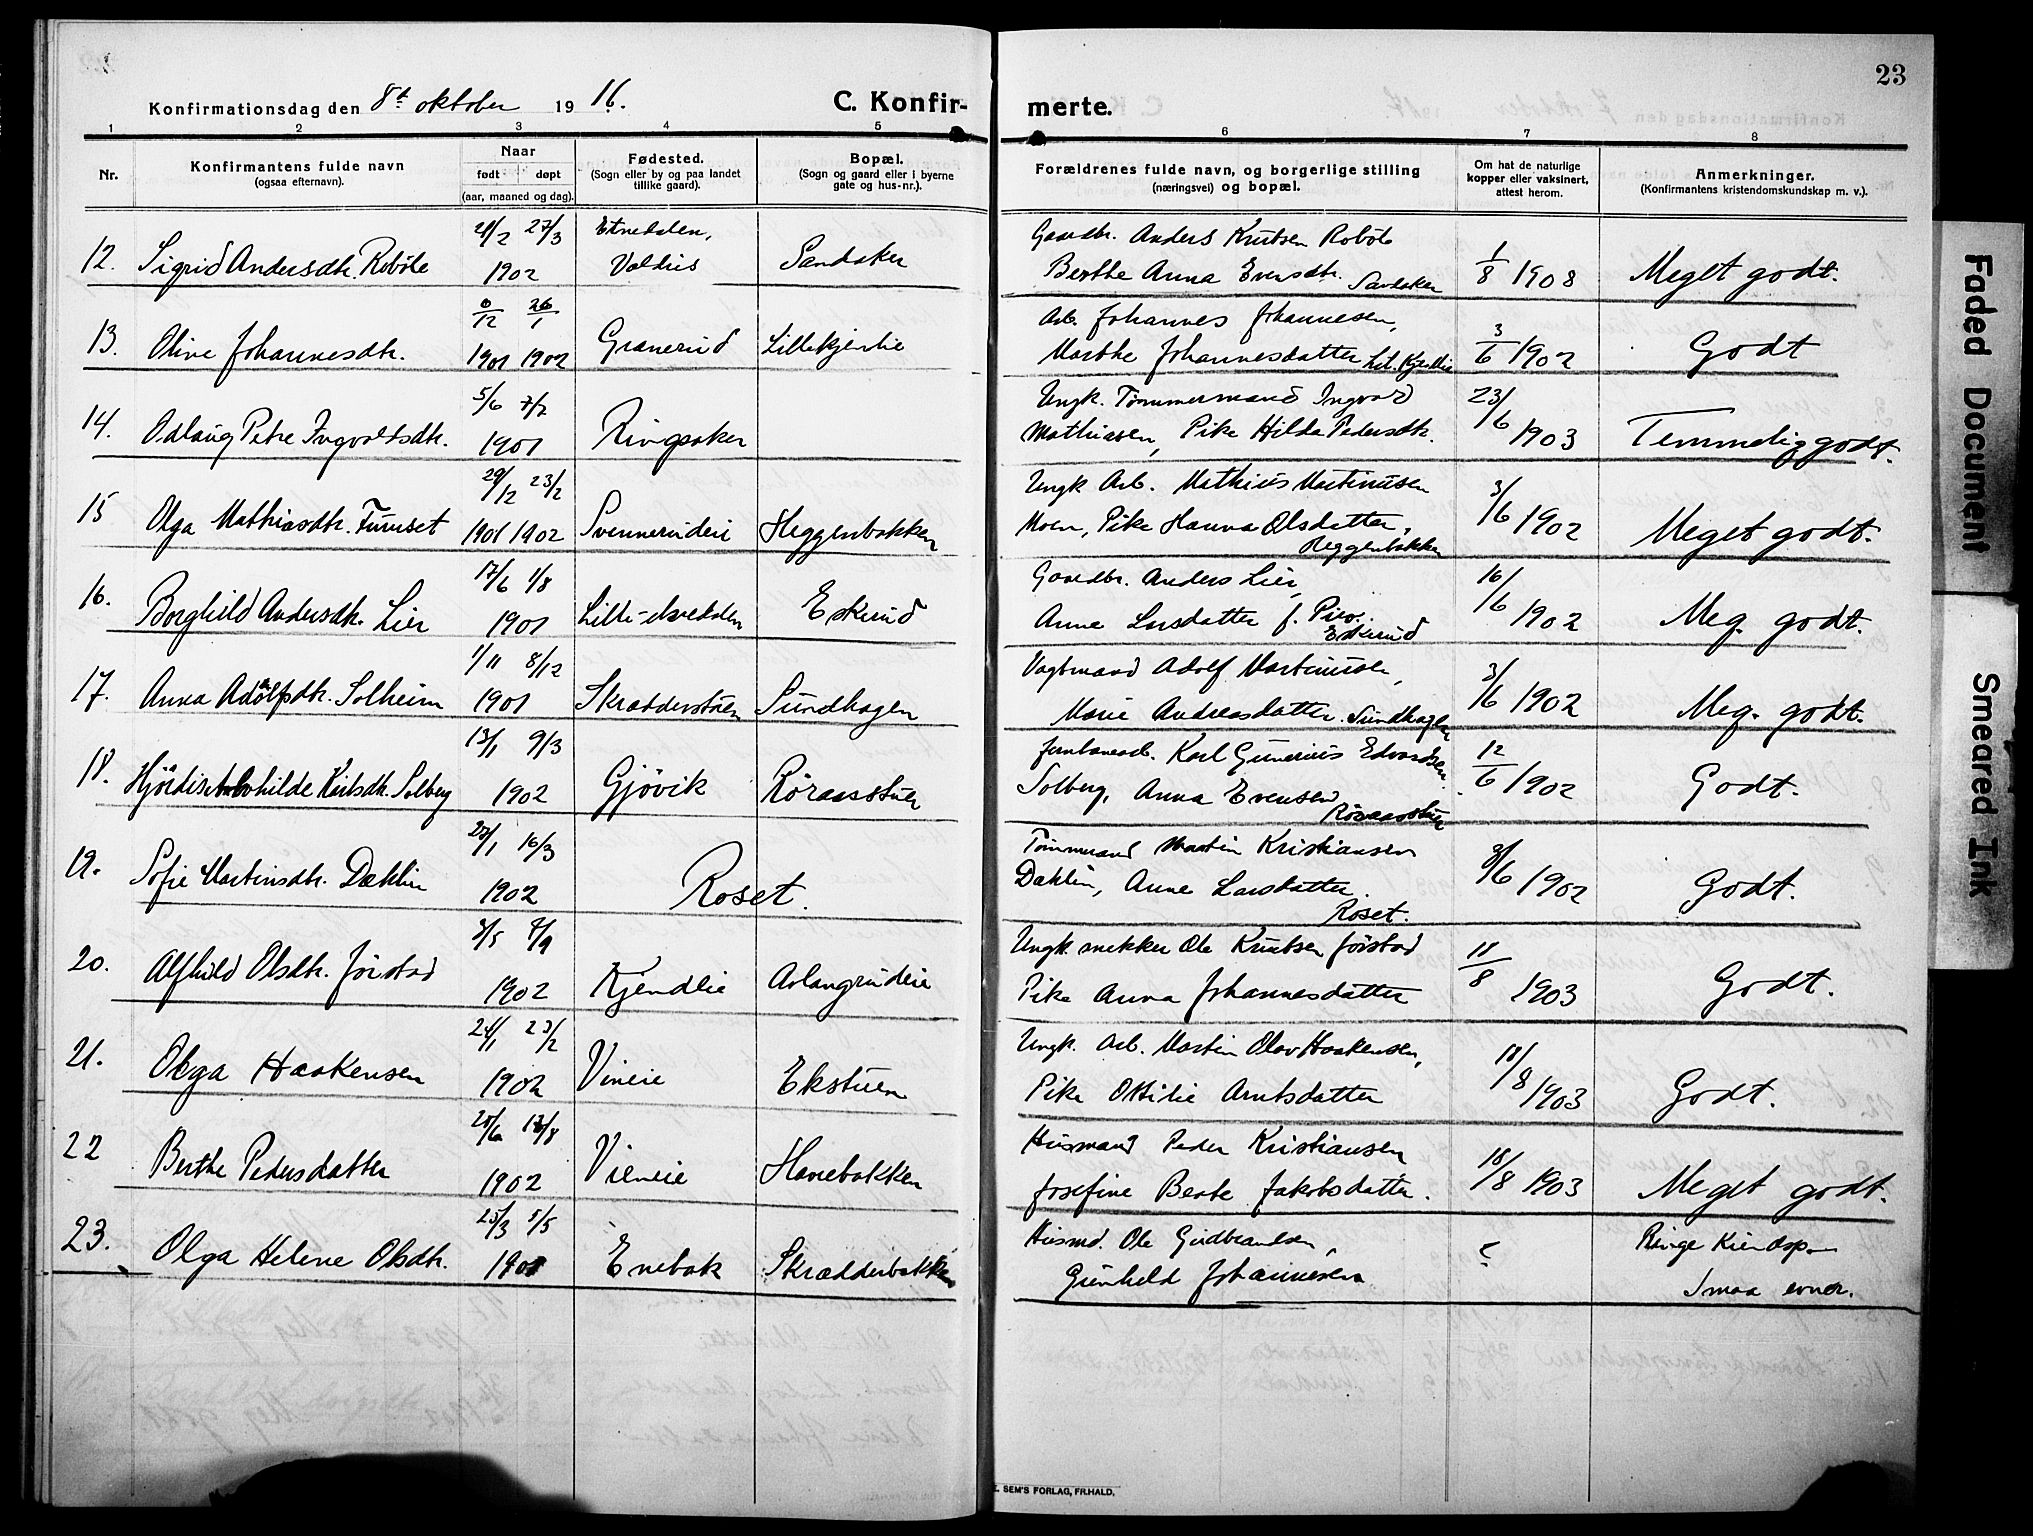 23
Konfirmationsdag den 8de oktober 1916.
C. Konfirmerte.
1 2 3 4 5 6 7 8
Nr.
Konfirmantens fulde navn
(ogsaa efternavn).
Naar
født døpt
(aar, maaned og dag).
Fødested.
(Sogn eller by og paa landet
tillike gaard).
Bopæl.
(Sogn og gaard eller i byerne
gate og hus-nr.).
Forældrenes fulde navn, og borgerlige stilling
(næringsvei) og bopæl.
Om hat de naturlige
kopper eller vaksinert,
attest herom.
Anmerkninger.
(Konfirmantens kristendomskundskap m. v.).
21/2 27/3 Etnedalen, Gaardbr. Anders Knutsen Robøle
12. Sigrid Andersdtr. Robøle 1902 Valdris Sandaker Berthe Anna Evensdtr. Sandaker 1/8 1908 Meget godt.
6/12 26/1 Arb. Johannes Johannesen,
13. Oline Johannesdtr. 1901 1902 Granerud Lillekjenlie Marthe Johannesdatter 3/6 1902 Godt
5/6 7/7 Ungk. Tømmermand Ingvard
14. Odlaug Petre Ingvaldsdtr. 1901 Ringsaker Mathiasen, Pike Hilda Pedersdtr. 23/6 1903 Temmelig godt.
29/12 23/2 Ungk Arb. Mathias Martinusen
15 Olga Mathiasdtr. Furuset 1901 1902 Svennerudeie Heggenbakken Moen, Pike Hanna Olsdatter, 3/6 1902 Meget godt.
Heggenbakken
17/6 1/8 Gaardbr. Anders Lier,
16. Borghild Andersdtr. Lier 1901 Eskerud Anne Larsdatter f. 16/6 1902 Meg. godt.
Eskerud
1/11 8/12 Vagtmand Adolf Martinusen,
17. Anna Adolfsdtr. Solheim 1901 Skrædderstuen Sundhagen Marie Andreasdatter. Sundhagen 3/6 1902 Meg. godt.
13/1 9/3 Jernbanearb. Karl Gunerius Edvardsen
18. Hjørdis Karlsdtr. Solberg 1902 Gjøvik Røraasstuen Solberg, Anna Evensen 12/6 1902 Godt.
Røraasstuen
16/3 Tømmermand Martin Kristiansen
19. Sofie Martinsdtr. Dæhlin 1902 Roset. Dæhlin, Anne Larsdatter. 1902 Godt.
Roset.
Ungk. snekker Ole Knutsen Jørstad
20. Alfhild Olsdtr. Jørstad 1902 Kjendlie Pike Anna Johannesdatter 11/8 1903 Godt.
24/1 23/2 Ungk. Arb. Martin Olav Haakensen,
21. Olga Haakensen 1902 Vineie Ekstuen Pike Ottilie Arntsdatter 18/8 1903 Godt.
Husmand Peder Kristiansen
22 Berthe Pedersdatter 1902 Vieneie Hanebakken Josefine Beate Jakobsdatter. 18/8 1903 Meget godt.
25/3 5/5 Husmd. Ole Gudbrandsen, Ringe Kundsp.
23. Olga Helene Olsdtr. 1901 Enebak Skrædderbakken Gunhild Johannesen ? Smaa evner.
SEM'S FORLAG, FR.HALD.
Faded Document
Smeared Ink